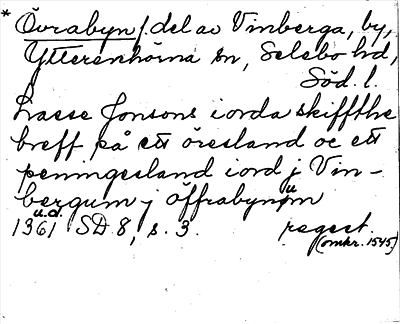 * Övrabyn /. del av Vinberga, by,
Ytterenhörna sn, Selebo hd,
Söd. l.
Lasse Jonsons iorda skiffthe
breff på ett öresland oc ett
penningesland iord j Vin-
bergum j öffrabynum
u.d.
1361 SD 8, s. 3. regest.
(omkr. 1545)